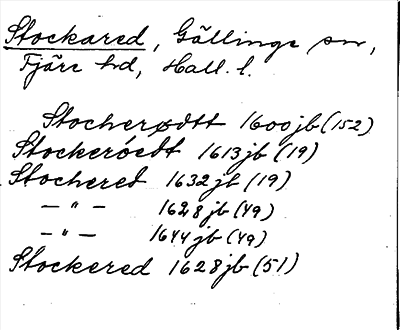 Stockared, Gällinge sn,
Fjäre hd, Hall. l.
Stocherødtt 1600 jb (152)
Stockeröedt 1613 jb (19)
Stochered 1632 jb (19)
— " — 1628 jb (49)
— " — 1644 jb (49)
Stockered 1628 jb (51)